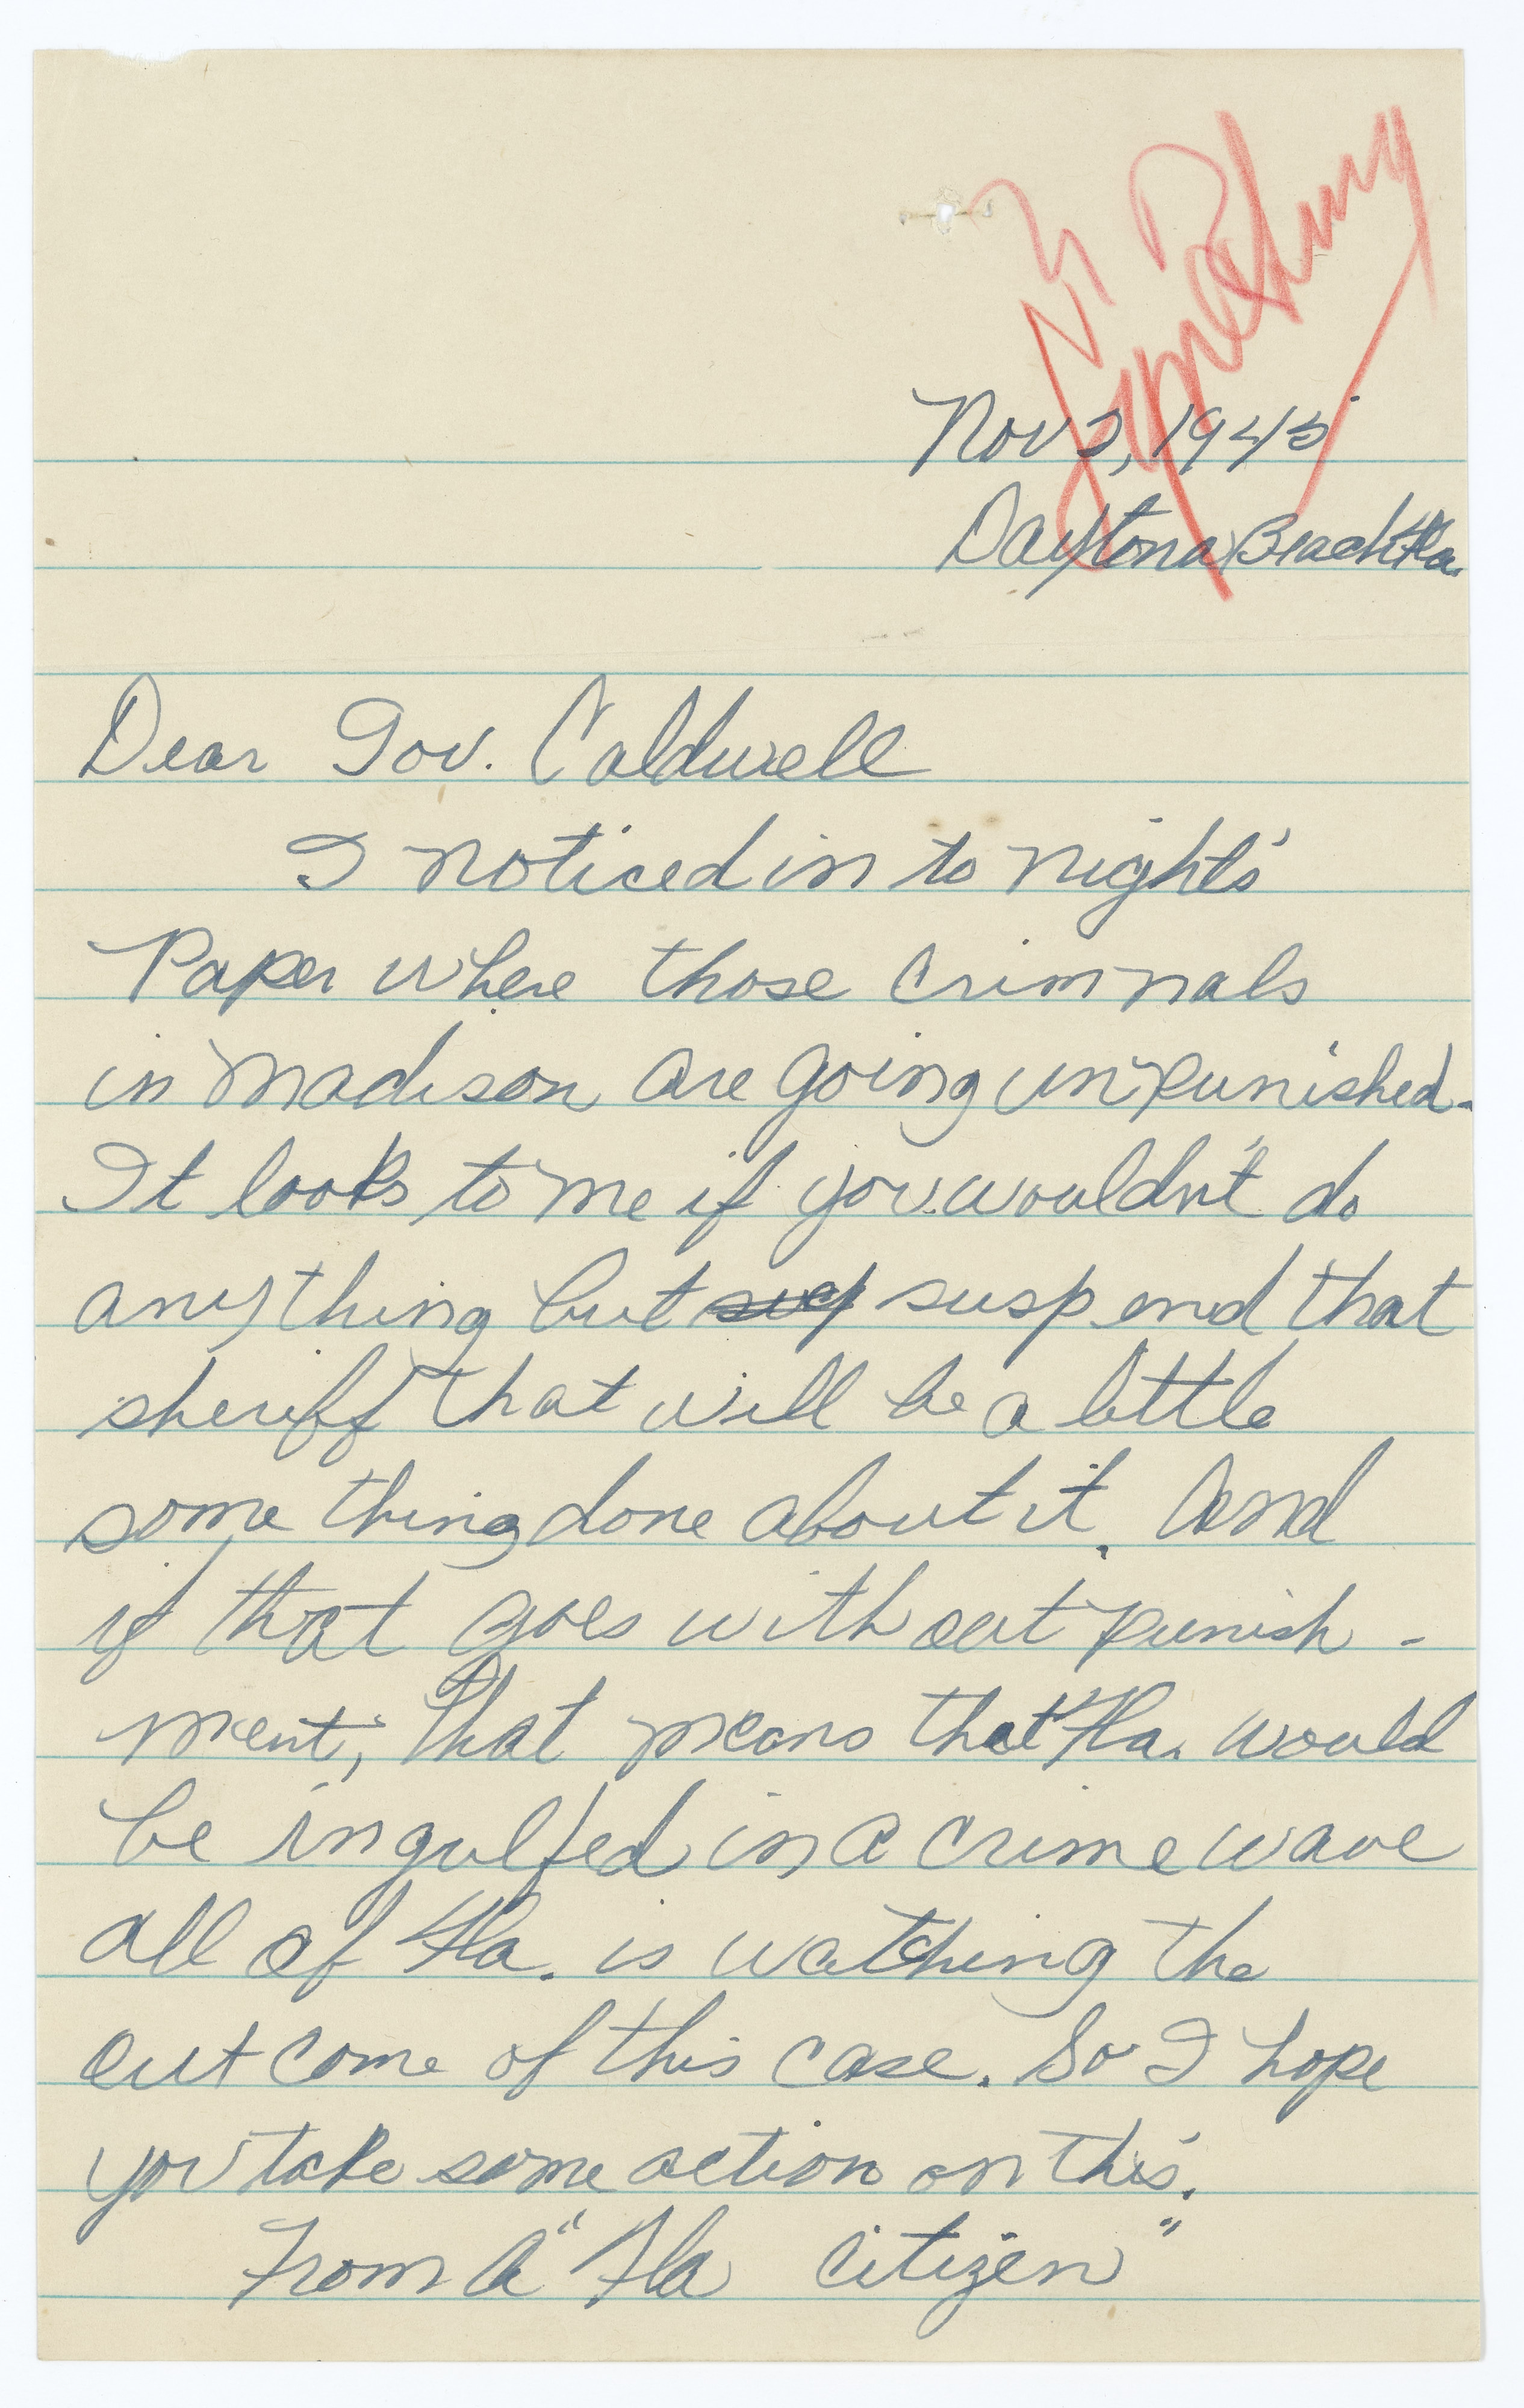 Lynching
Nov 2, 1945
Daytona Beach Fla.
Dear Gov. Caldwell
I noticed in to night's
Paper where those crimnals
in Madison are going unpunished.
It looks to me if you wouldn't do
anything but suspend that
sheriff that will be a little
some thing done about it. And
if that goes with out punish -
ment, that means that Fla. would
be ingulfed in a crime wave
all of Fla. is watching the
out come of this case. So I hope
you take some action on this.
From A "Fla Citizen"